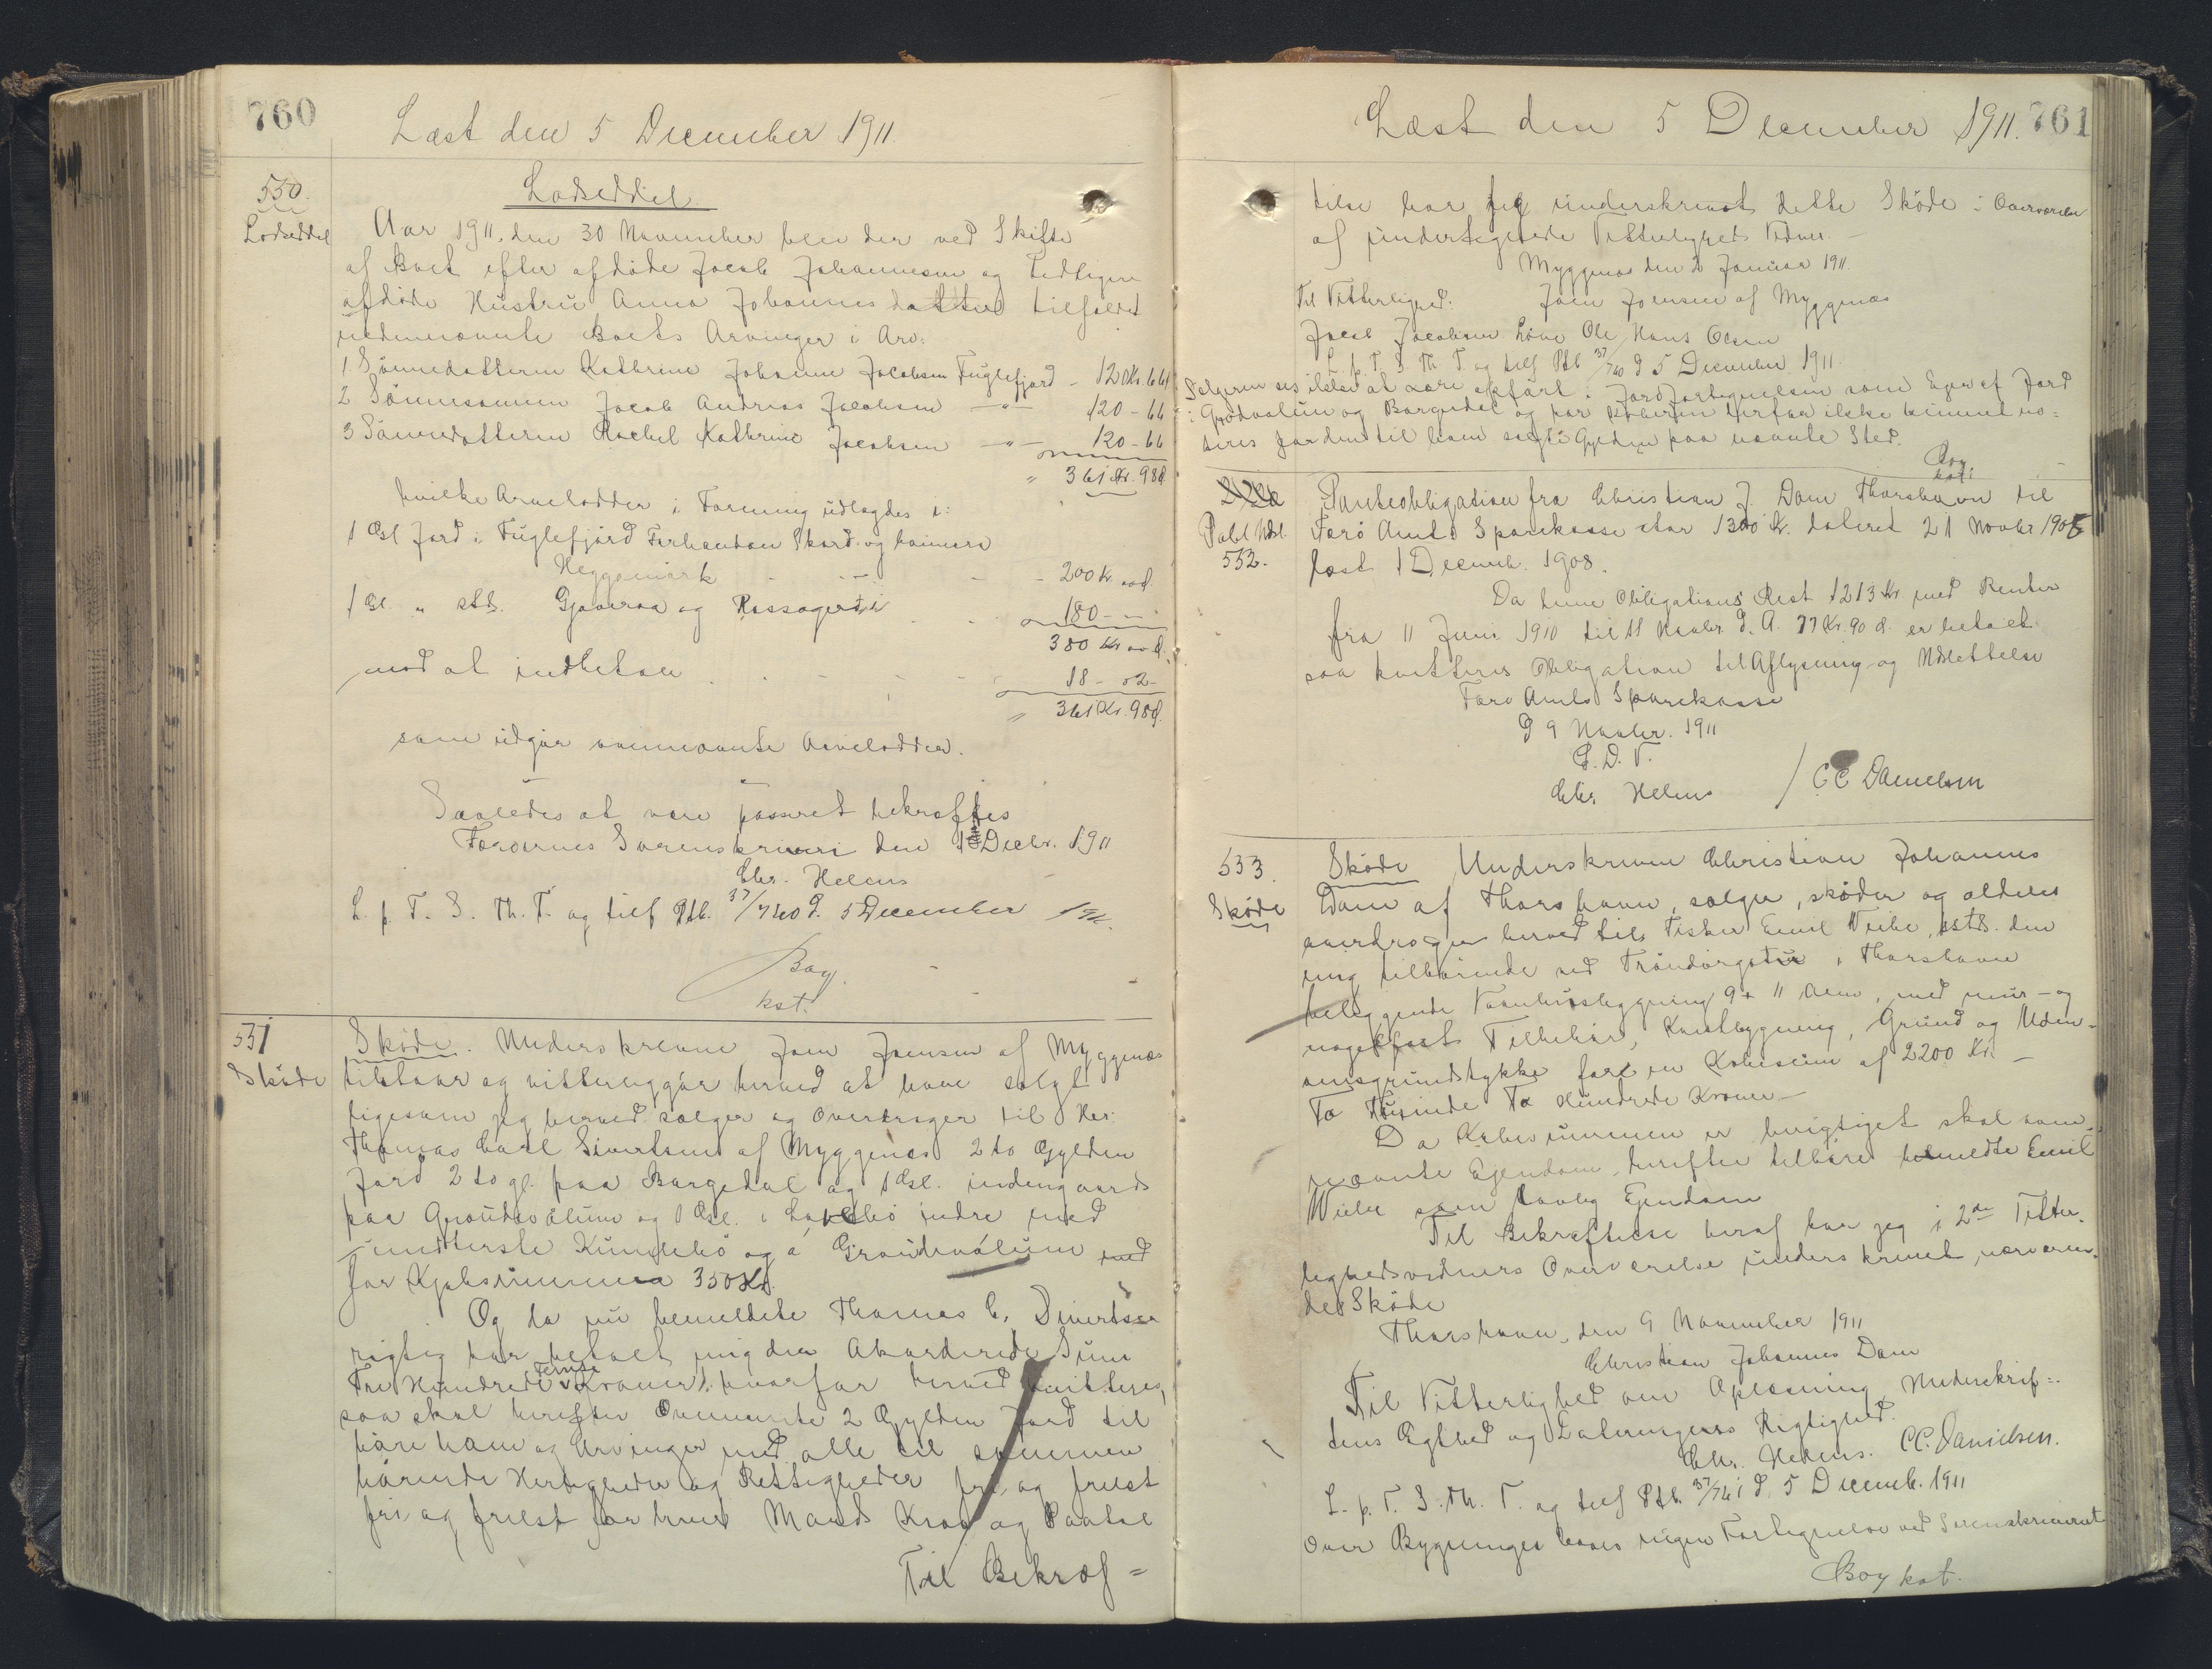 760
Læst den 5 December 1911.
550.
Lodseddel
Lodseddel
Aar 1911, den 30 November blev der ved Skifte
af Boet efter afdøde Jacob Johannesen og tidligere
afdøde Hustru Anna Johannesdatter tilfaldet
nedennævnte Boets Arvinger i Arv:
1 Sønnedatteren Kathrine Johanne Jacobsen Fuglefjord - 120 Kr. 66
2 Sønnesønnen Jacob Andreas Jacobsen - " - 120 - 66
3 Sønnedatteren Rachel Kathrine Jacobsen - " - 120 - 66
" 361 Kr. 98 Ø.
hvilke Arvelodder i Forening udlagdes i:
1 Gl Jord i Fuglefjord Skard og
Heggamørk - 200 Kr. 00 Ø.
1 Gl. " stds. Gjoveraa og 180 - -
380 Kr 00 Ø.
mod at indbetale 18 - 02 -
" 361 Kr. 98 Ø.
som udgør ovennævnte Arvelodder.
Saaledes at være passeret bekræftes
Færøernes Sorenskriveri den 1 Decbr. 1911
Chr. Helms
L. p. T. S. Th. T. og tilf Ptb. 37/760 d. 5 December 1911.
Bay.
kst.
551
Skøde
Skøde. Underskrevne Joen Joensen af Myggenæs
tilstaar og vitterliggør herved at have solgt
ligesom jeg herved sælger og overdrager til Hr:
Thomas Carl Sivertsen af Myggenæs 2 to Gylden
Jord 2 to gl. paa Borgedal og 1 Gl. indengaards
paa og 1 Gl. i indre med
Kunglebø og á med
for Kjøbesummen 350 Kr.
Og da nu bemeldte Thomas C. Sivertsen
rigtig har betalt mig den Akorderede Sum
Tre Hundrede Femti Kroner, hvorfor herved kvitteres,
saa skal herefter Ovennævnte 2 Gylden Jord til
høre ham og Arvinger med alle til sammen
hørende Herligheder og Rettigheder fri og frelst
fri og frelst for hver Mands Krav og Paatale
Til Bekræf=
Læst den 5 December 1911. 761
telse har jeg underskrevet dette Skøde i Overværelse
af undertegnede Vitterligheds Vidner. -
Myggenæs den 2 Januar 1911.
Til Vitterlighed: Joen Joensen af Myggenæs
Jacob Jacobsen Ole Hans Olsen
L. p. T. S. Th. T. og tilf Ptb 37/760 d 5 December 1911.
Sælgeren ses ikke at være opført i Jordfortegnelsen som Ejer af Jord
i og Borgedal og har Køberen herfor ikke kunnet no=
teres for den til ham solgte Gylden paa nævnte Sted.
Bay
kst.
Pakl Udsl.
552.
Panteobligation fra Christian J. Dam Thorshavn til
Færø Amts Sparekasse stor 1300 Kr. dateret 21 Novbr 1908
læst 1 Decemb. 1908.
Da denne Obligations Rest 1213 Kr. med Renter
fra 11 Juni 1910 til 11 Novbr. d. A. 77 Kr. 90 Ø. er betalt
saa kvitteres Obligation til Aflysning og Udslettelse
Færø Amts Sparekasse
d 9 Novbr. 1911
P. D. V.
Chr Helms / C C Danielsen
553.
Skøde
Skøde Underskrevne Christian Johannes
Dam af Thorshavn, sælger, skøder og aldeles
overdrager herved til Fisker Emil Weihe, sstds. den
mig tilhørende ved Tróndargøtu i Thorshavn
beliggende Vaanhusbygning 9 x 11 Alen, med mur- og
nagelfast Tilbehør, Grund og Uden-
omsgrundstykke for en Købesum af 2200 Kr. -
To Tusinde To Hundrede Kroner -
Da Købesummen er berigtiget skal oven-
nævnte Ejendom herefter tilhøre bemeldte Emil
Weihe som lovlig Ejendom
Til Bekræftelse heraf har jeg i 2de Vitter-
lighedsvidners Overværelse underskrevet nærværen-
de Skøde
Thorshavn, den 9 November 1911
Christian Johannes Dam
Til Vitterlighed om Oplæsning, Underskrif=
tens Ægthed og Dateringens Rigtighed.
Chr. Helms. C.C. Danielsen.
L. p. T. S. Th. T. og tilf Ptb. 37/761 d. 5 Decemb. 1911
Over Bygninger haves ingen Fortegnelse ved Sorenskriveriet
Bay kst.